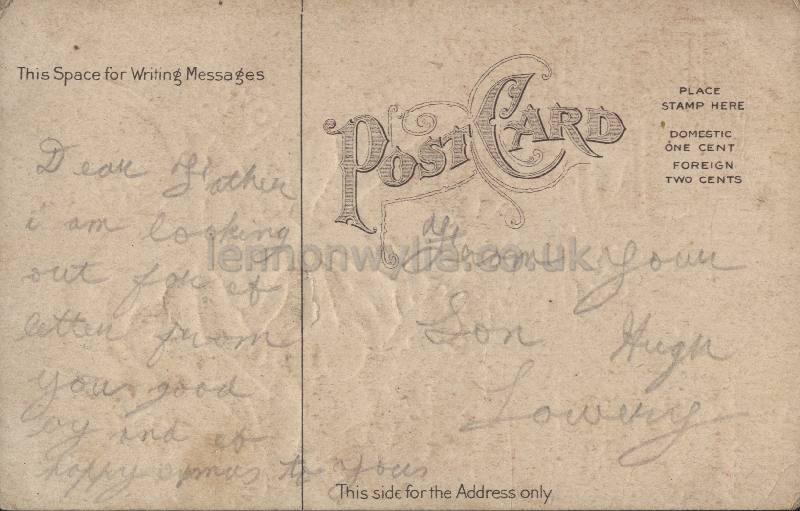 This Space for Writing Messages
POST CARD
PLACE
STAMP HERE
DOMESTIC
ONE CENT
FOREIGN
TWO CENTS
Dear Father
i am looking
out for et
letter from
you good
by and et
happy xmas to yous
From your
Son Hugh
Lowery
This side for the Address only
lennonwylie.co.uk